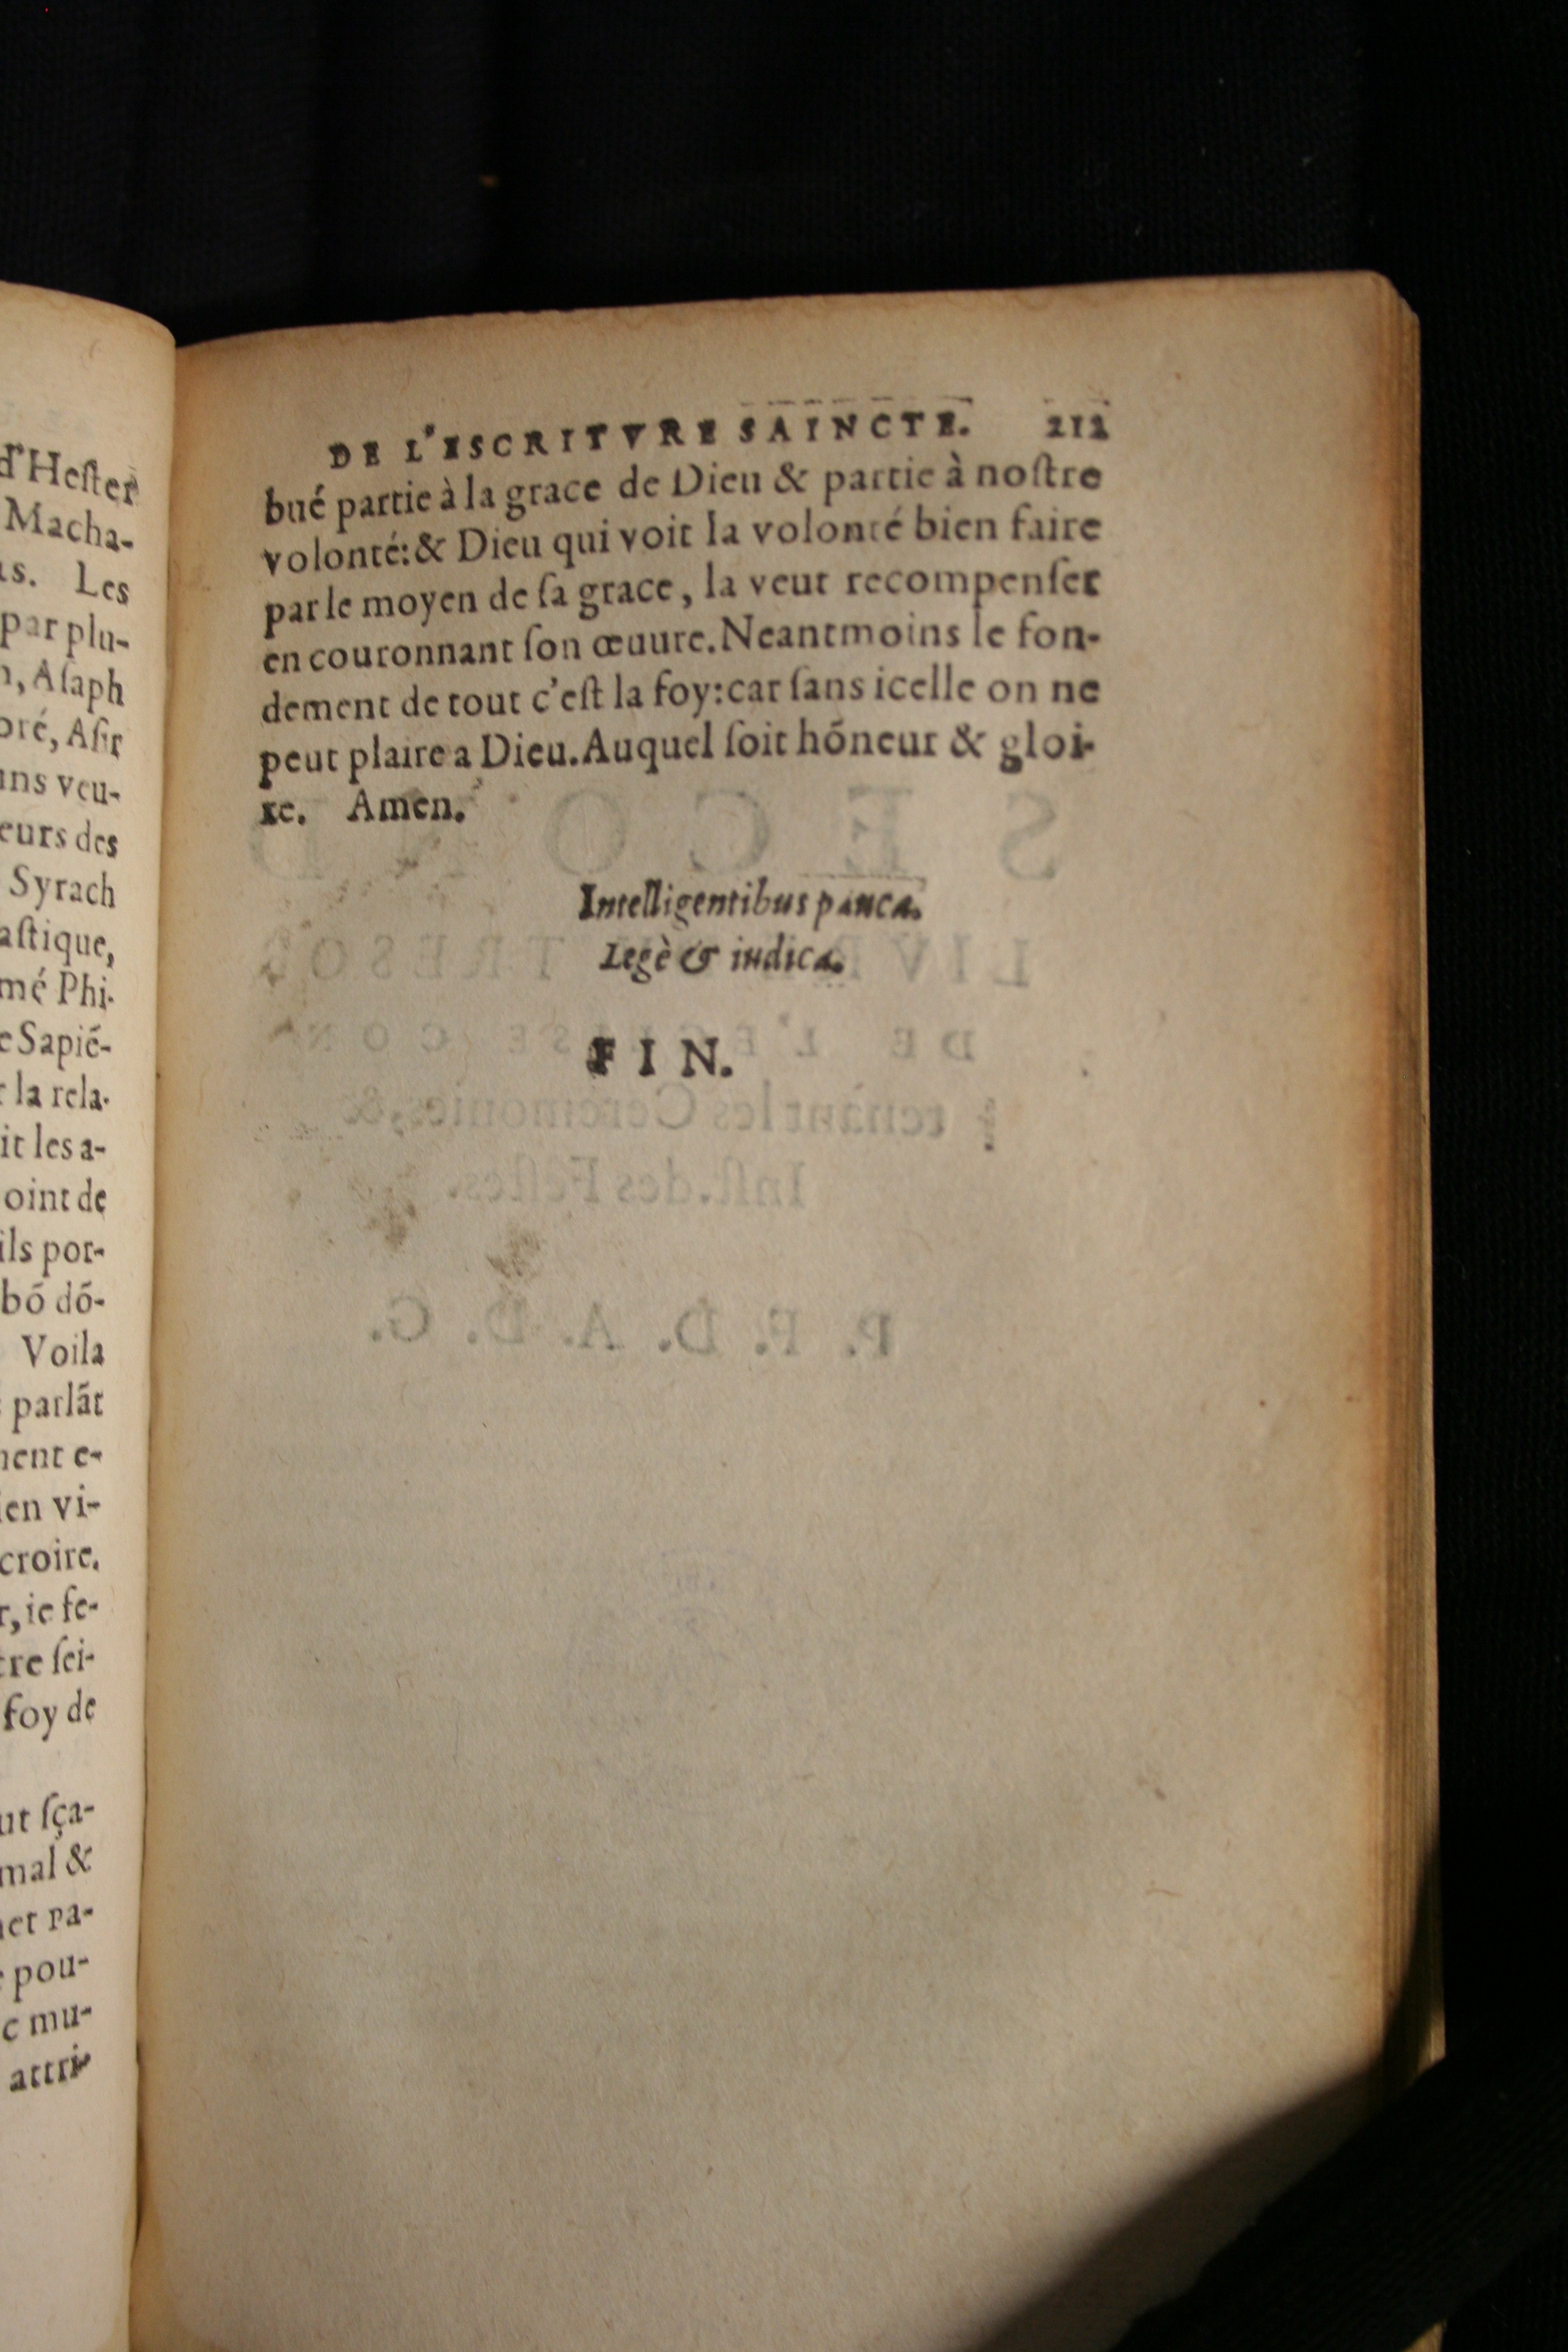 d'Heſter
Macha-
Les
par plu-
Aſaph
Aſir
veu-
des
Syrach
Phi-
Sapiē-
la rela-
les a-
oint de
ils por-
bõ dõ-
Voila
parlãt
e-
vi-
croire.
ie ſe-
ſei-
foy de
ſça-
mal &
pa-
pou-
mu-
attri-
DE L'ESCRITVRE SAINCTE. 212
bué partie à la grace de Dieu & partie à noſtre
volonté:& Dieu qui voit la volonté bien faire
par le moyen de ſa grace, la veut recompenſer
en couronnant ſon œuure. Neantmoins le fon-
dement de tout c'eſt la foy:car ſans icelle on ne
peut plaire a Dieu. Auquel ſoit hõneur & gloi-
re. Amen.
Intelligentibus pauca.
Legè & iudica.
FIN.